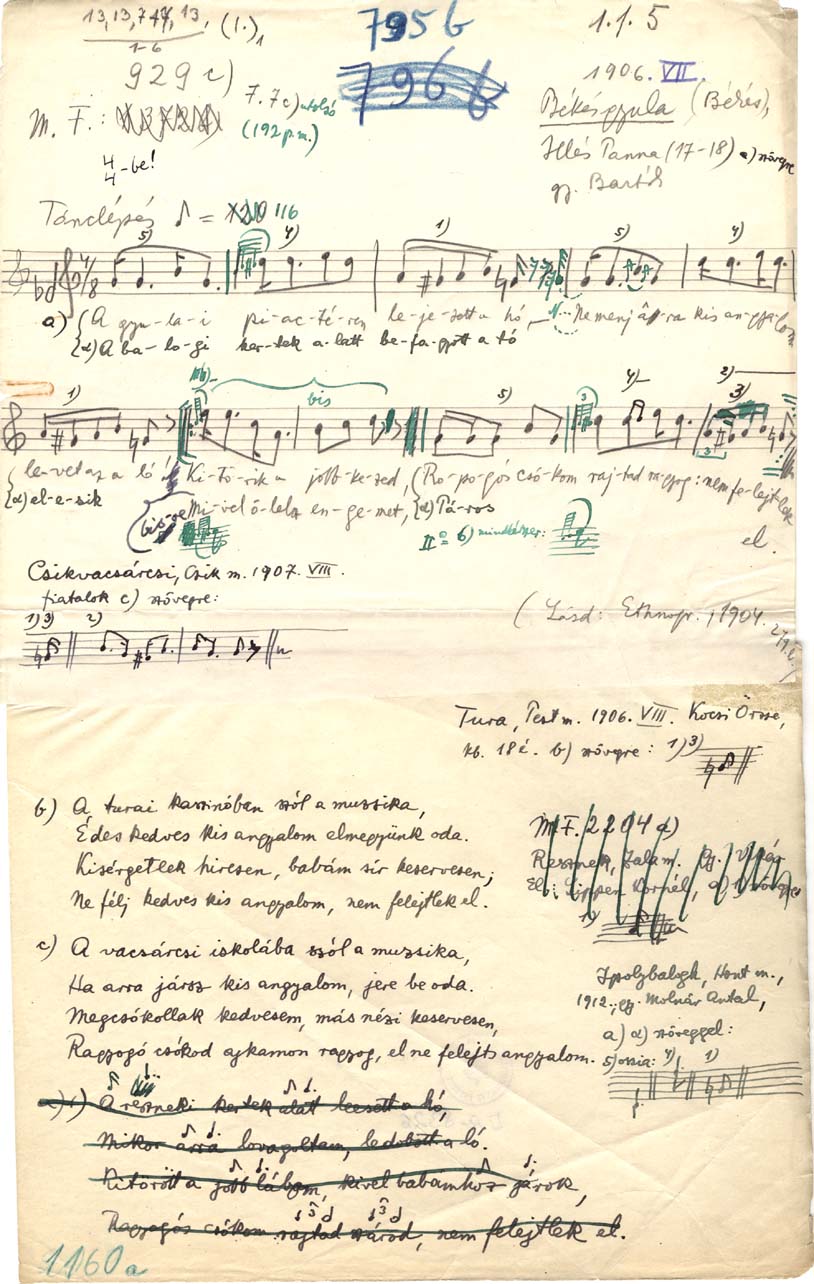 13, 13, 7+7, 13, (1.)
1-6
795 b
1. 1. 5
929 c)
796 b
1906. VII.
7. 7c) utolsó
(192 p.m.)
Békésgyula (Békés),
M. F.:
4/4-be!
Illés Panna (17-18) a) szövegre
gy. Bartók
Tánclépés ♪ = 116
5) 4) 1) 5) 4)
a) A gyu-la-i pi-ac-té-ren le-je-sett a hó, Ne menj ár-ra kis an-gya-lom
α) A ba-lo-gi ker-tek a-latt be-fa-gyott a tó
1) bis 5) 4) 2) 3)
le-vet az a ló! Ki-tö-rik a jobb ke-zed, Ro-po-gós csó-kom raj-tad ragyog: nem fe-lejtlek
α) el-e-sik bis-re Mi-vel ö-lelsz en-ge-met, α) Pá-ros
el.
II° = b) mindkétszer:
Csikvacsárcsi, Csik m. 1907. VIII.
fiatalok c) szövegre:
(Lásd: Ethnogr., 1904.
1) 3) 2)
Tura, Pest m. 1906. VIII. Kocsi Örzse,
kb. 18 é. b) szövegre: 1) 3)
b) A turai kaszinóban szól a muzsika,
Édes kedves kis angyalom elmegyünk oda.
Kisérgetlek hiresen, babám sír keservesen;
Ne félj kedves kis angyalom, nem felejtlek el.
M. F. 2204 d)
Resznek, Zala m. Gy.
El.: Lippen Kornél, a)
1)
c) A vacsárcsi iskolába szól a muzsika,
Ha arra jársz kis angyalom, jere be oda.
Megcsókollak kedvesem, más nézi keservesen,
Ragyogó csókod ajkamon ragyog, el ne felejts angyalom.
Ipolybalogh, Hont m.,
1912, gy. Molnár Antal,
a) α) szöveggel:
5) ossia: 4) 1)
A reszneki kertek alatt leesett a hó,
Mikor arra lovagoltam, ledobott a ló.
Kitörött a jobb lábam, kivel babámhoz járok,
Ragyogós csókom rajtad szárod, nem felejtlek el.
1160a